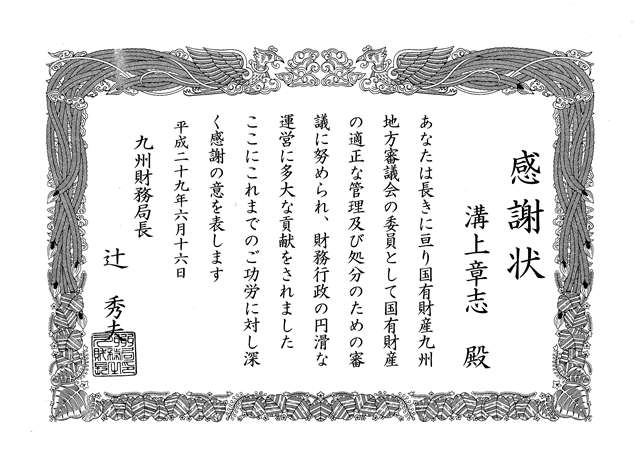 感謝状
溝上章志 殿
あなたは長きに亘り国有財産九州
地方審議会の委員として国有財産
の適正な管理及び処分のための審
議に努められ、財務行政の円滑な
運営に多大な貢献をされました
ここにこれまでのご功労に対し深
く感謝の意を表します
平成二十九年六月十六日
九州財務局長
辻 秀夫